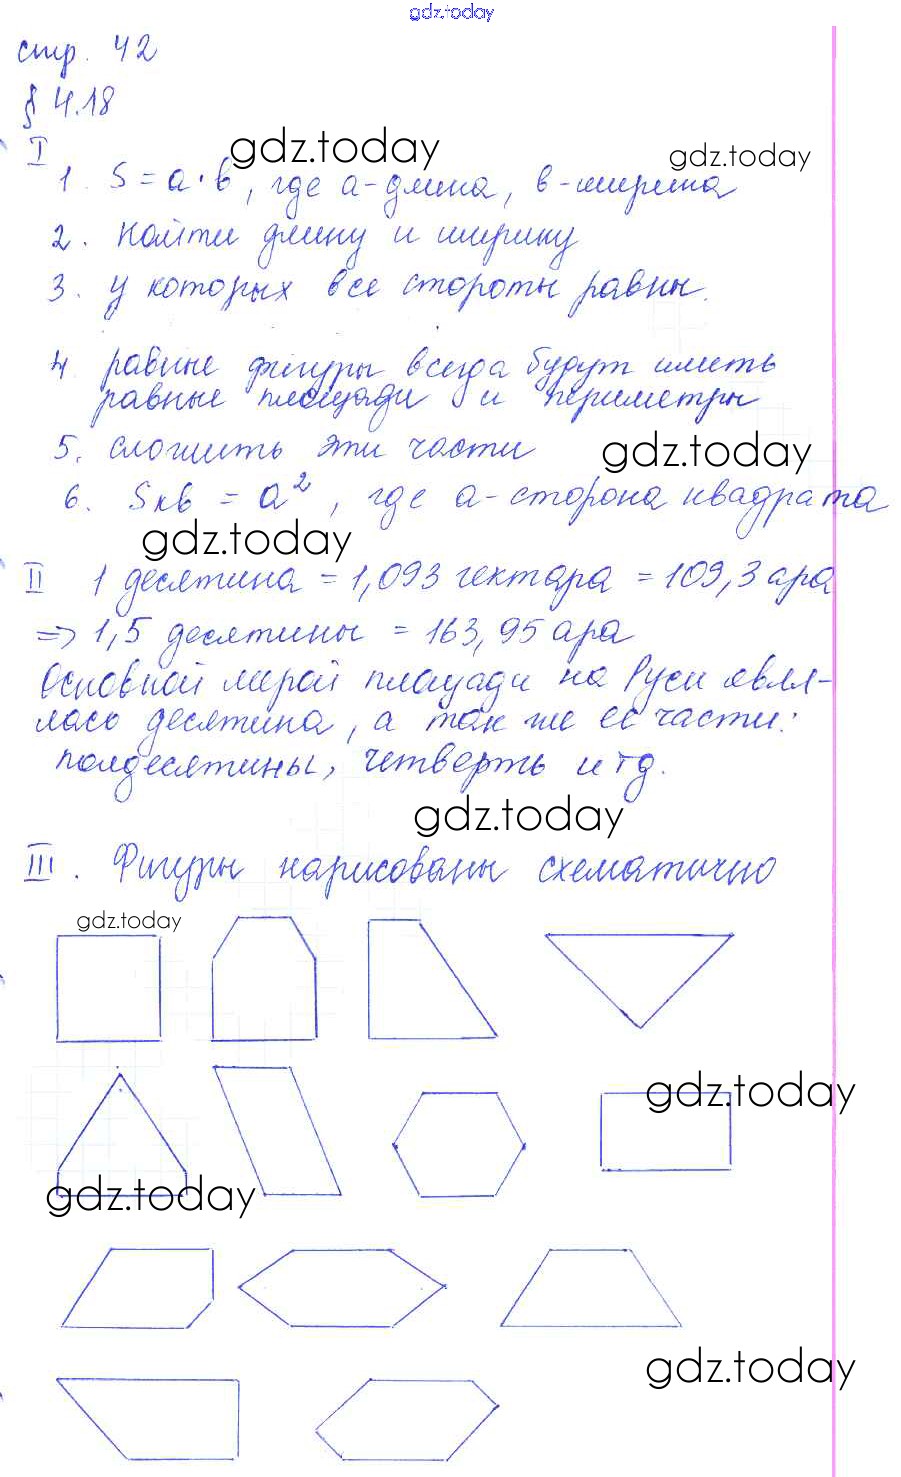 gdz.today
стр. 42
§ 4.18
I
gdz.today
gdz.today
1. S = a · b, где a - длина, b - ширина
2. найти длину и ширину
3. у которых все стороты равны.
4. равные фигуры всегда будут иметь
равные площади и периметры
5. сложить эти части
gdz.today
6. Sкв = a², где a - сторона квадрата
gdz.today
II 1 десятина = 1,093 гектара = 109,3 ара
=> 1,5 десятины = 163,95 ара
Основной мерой площади на Руси явля-
лась десятина, а так же её части:
полдесятины, четверть и тд.
gdz.today
III. Фигуры нарисованы схематично
gdz.today
gdz.today
gdz.today
gdz.today